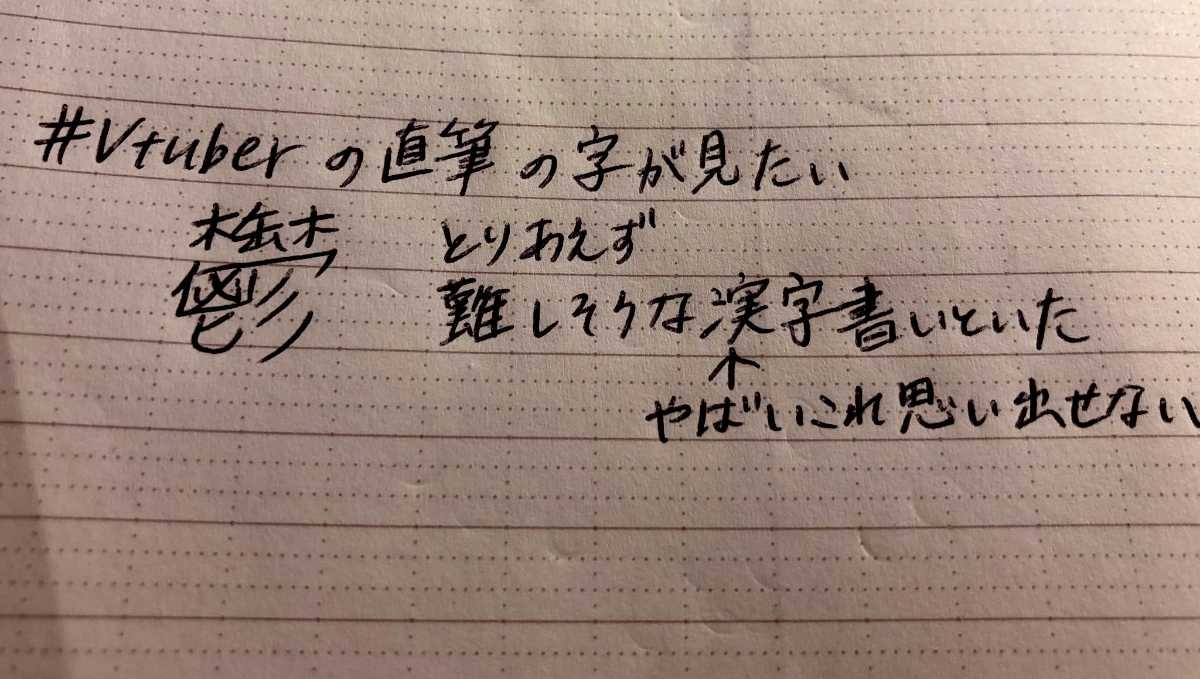 #Vtuberの直筆の字が見たい
鬱
とりあえず
難しそうな漢字書いといた
↑
やばいこれ思い出せない